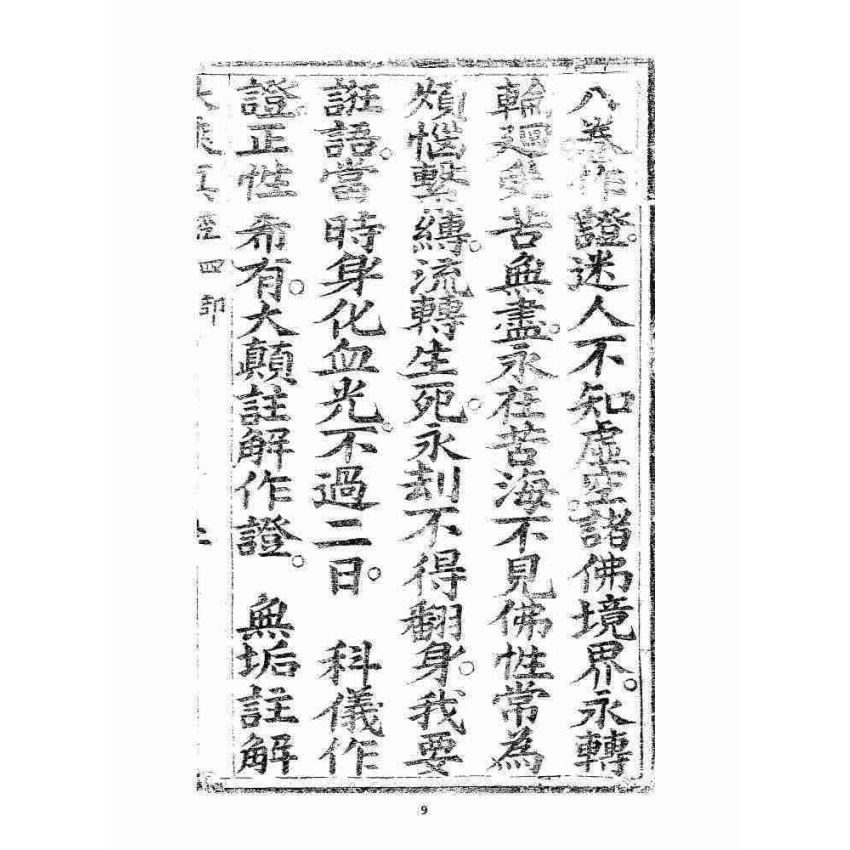 八卷作證。迷人不知虛空。諸佛境界。永轉
輪迴受苦無盡。永在苦海不見佛性常為
煩惱繫縛。流轉生死。永刼不得翻身。我要
誑語。當時身化血光。不過二日。　科儀作
證正性希有。大顛註解作證。　無垢註解
四部
9